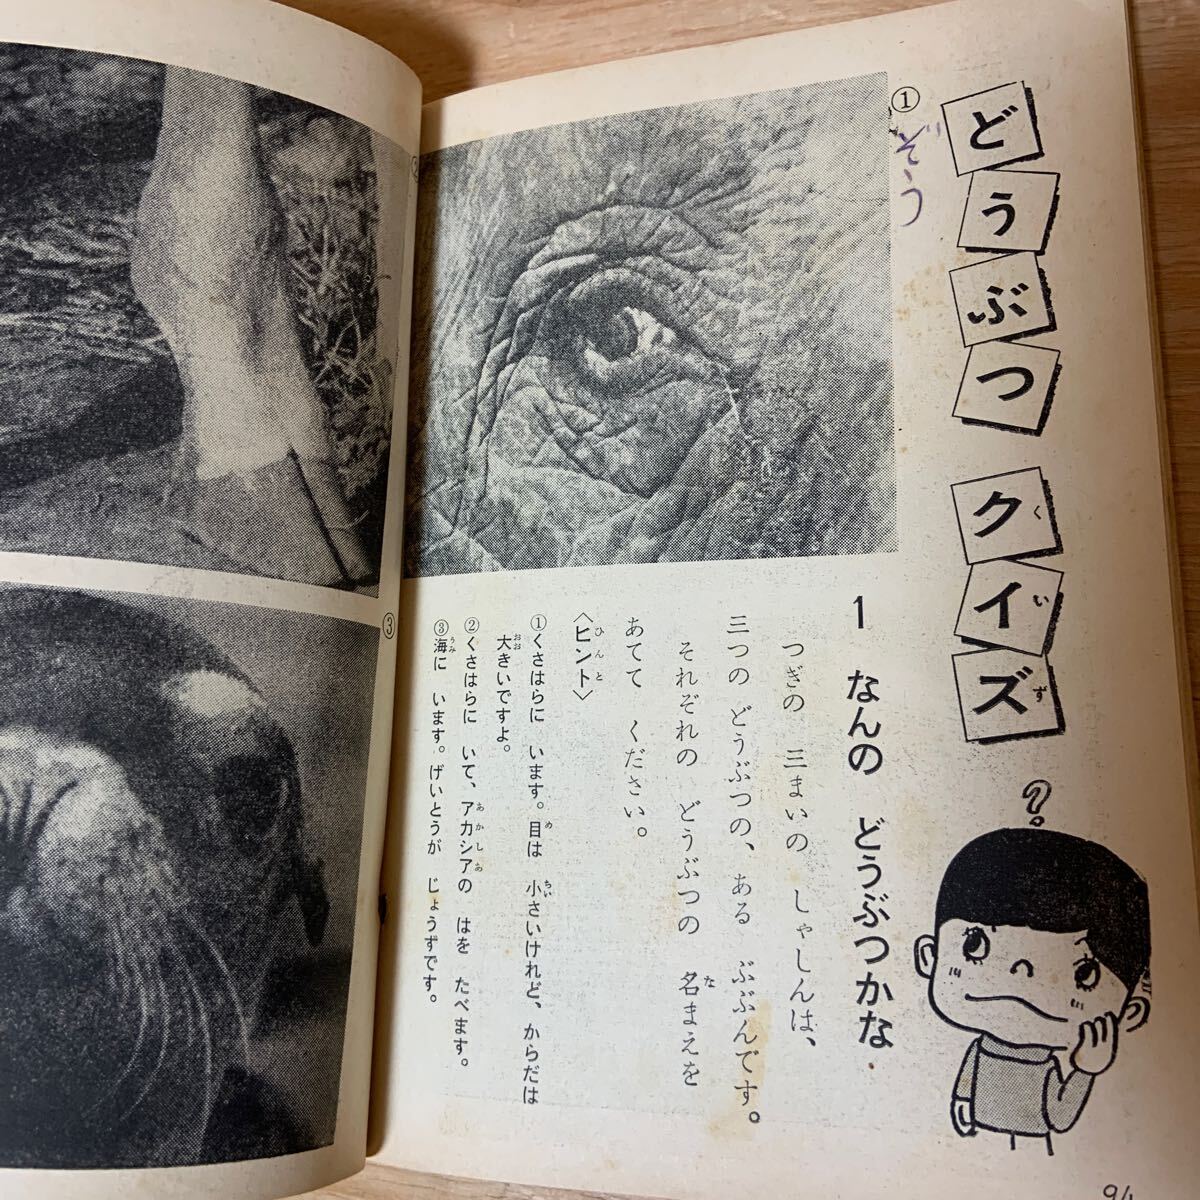 どうぶつ クイズ
くいず
?
①
ぞう
1 なんの どうぶつかな
つぎの 三まいの しゃしんは、
三つの どうぶつの、ある ぶぶんです。
それぞれの どうぶつの 名まえを
な
あてて ください。
〈ヒント〉
ひんと
①くさはらに います。目は 小さいけれど、からだは
め ちい
大きいですよ。
おお
②くさはらに いて、アカシアの はを たべます。
あかしあ
③海に います。げいとうが じょうずです。
うみ
②
③